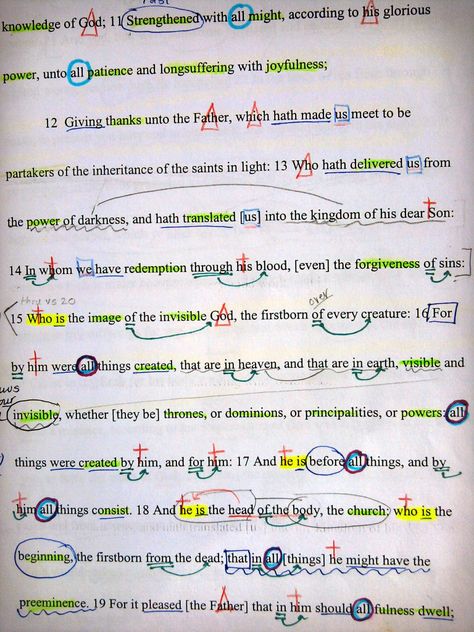 knowledge of God; 11 Strengthened with all might, according to his glorious
power, unto all patience and longsuffering with joyfulness;
12 Giving thanks unto the Father, which hath made us meet to be
partakers of the inheritance of the saints in light: 13 Who hath delivered us from
the power of darkness, and hath translated [us] into the kingdom of his dear Son:
14 In whom we have redemption through his blood, [even] the forgiveness of sins:
thru vs 20
over
15 Who is the image of the invisible God, the firstborn of every creature: 16 For
by him were all things created, that are in heaven, and that are in earth, visible and
invisible, whether [they be] thrones, or dominions, or principalities, or powers: all
things were created by him, and for him: 17 And he is before all things, and by
him all things consist. 18 And he is the head of the body, the church; who is the
beginning, the firstborn from the dead; that in all [things] he might have the
preeminence. 19 For it pleased [the Father] that in him should all fulness dwell;